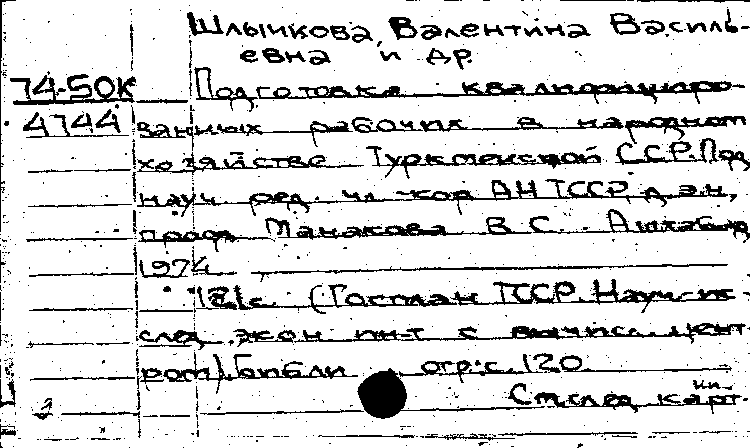 Шлычкова, Валентина Василь-
евна и др.
74-50К Подготовка квалифициро-
4744 ванных рабочих в народном
хозяйстве Туркменской ССР. Под
науч. ред. чл.-кор АН ТССР, д.э.н,
проф. Манакова В. С. Ашхабад
1974
121с. (Госплан ТССР. Науч-ис-
след. экон ин-т с вычисл. цент-
ром). Библи огр.: с. 120.
См.след карт.